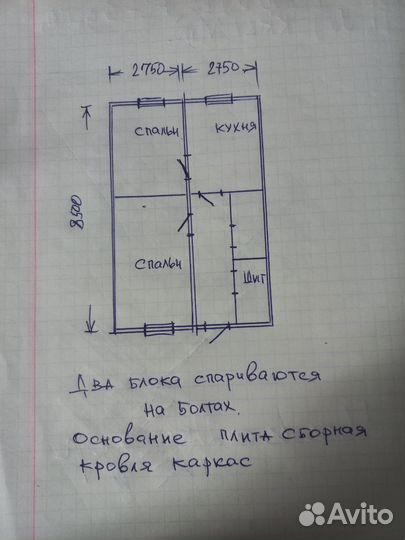 2750 2750
спальн кухня
8500
спальн
щит
Два блока спариваются
на болтах.
Основание плита сборная
кровля каркас
Avito